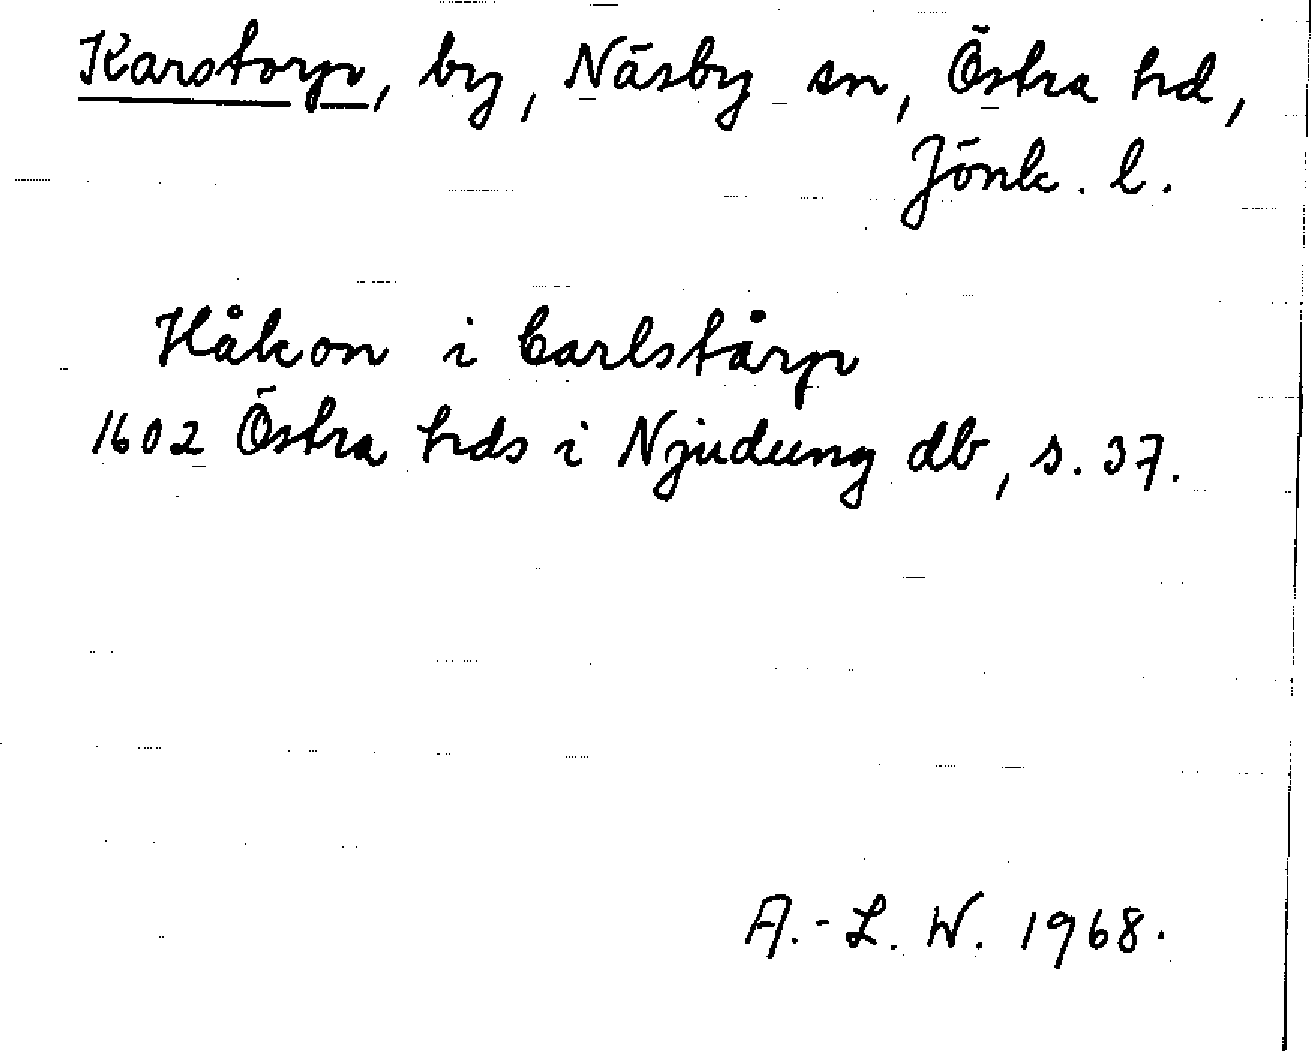 Karstorp, by, Näsby sn, Östra hd,
Jönk. l.
Håkon i Carlstårp
1602 Östra hds i Njudung db, s. 37.
A.-L. W. 1968.